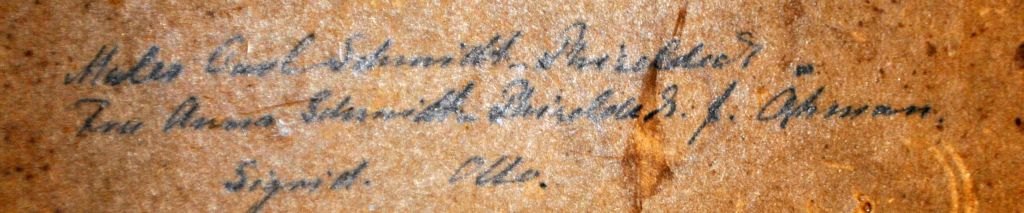 Maler Carl Schmidt
Fru Anna Schmidt f. Öhman.
Sigrid. Otto.